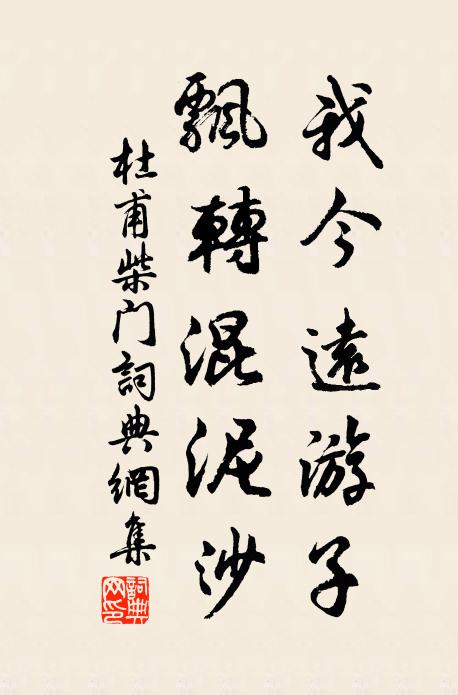 我今遠游子
飄轉混泥沙
杜甫柴门詞典網集
詞典网印